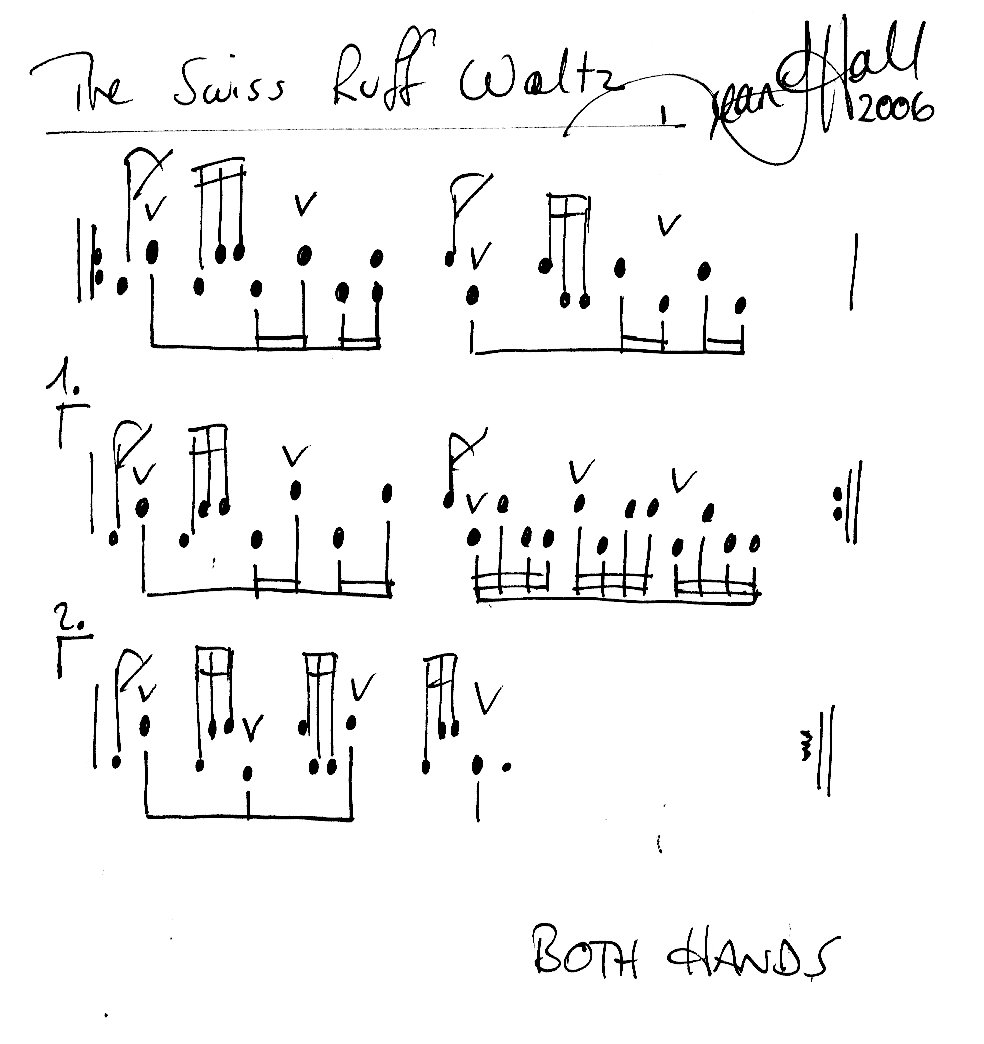 The Swiss Ruff Waltz
Jean Hall
2006
1.
2.
BOTH HANDS